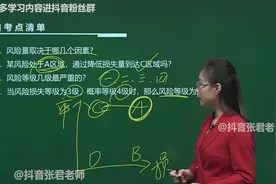 多学习内容进抖音粉丝群
考点清单
风险量取决于哪几个因素?
某风险处于A区域,通过降低损失量到达C区域吗?
风险等级几级最严重的?
当风险损失等级为3级,概率等级4级时,那么风险等级为
A
D
B
损
@抖音张君老师
@抖音张君老师